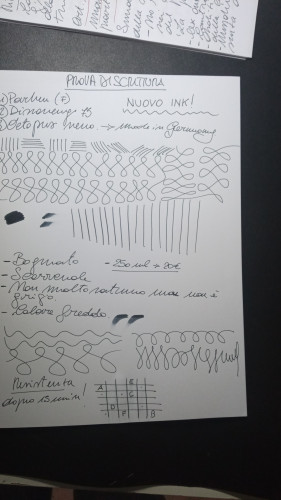 PROVA DI SCRITTURA
1) Parker (F)
NUOVO INK!
2) Diamine
3) Octopus nero → made in Germany
- Bagnato
- 250 ml → 20€
- Scorrevole
- Non molto saturo ma non è
grigio.
- Colore freddo.
Resistenza
dopo 15 min!